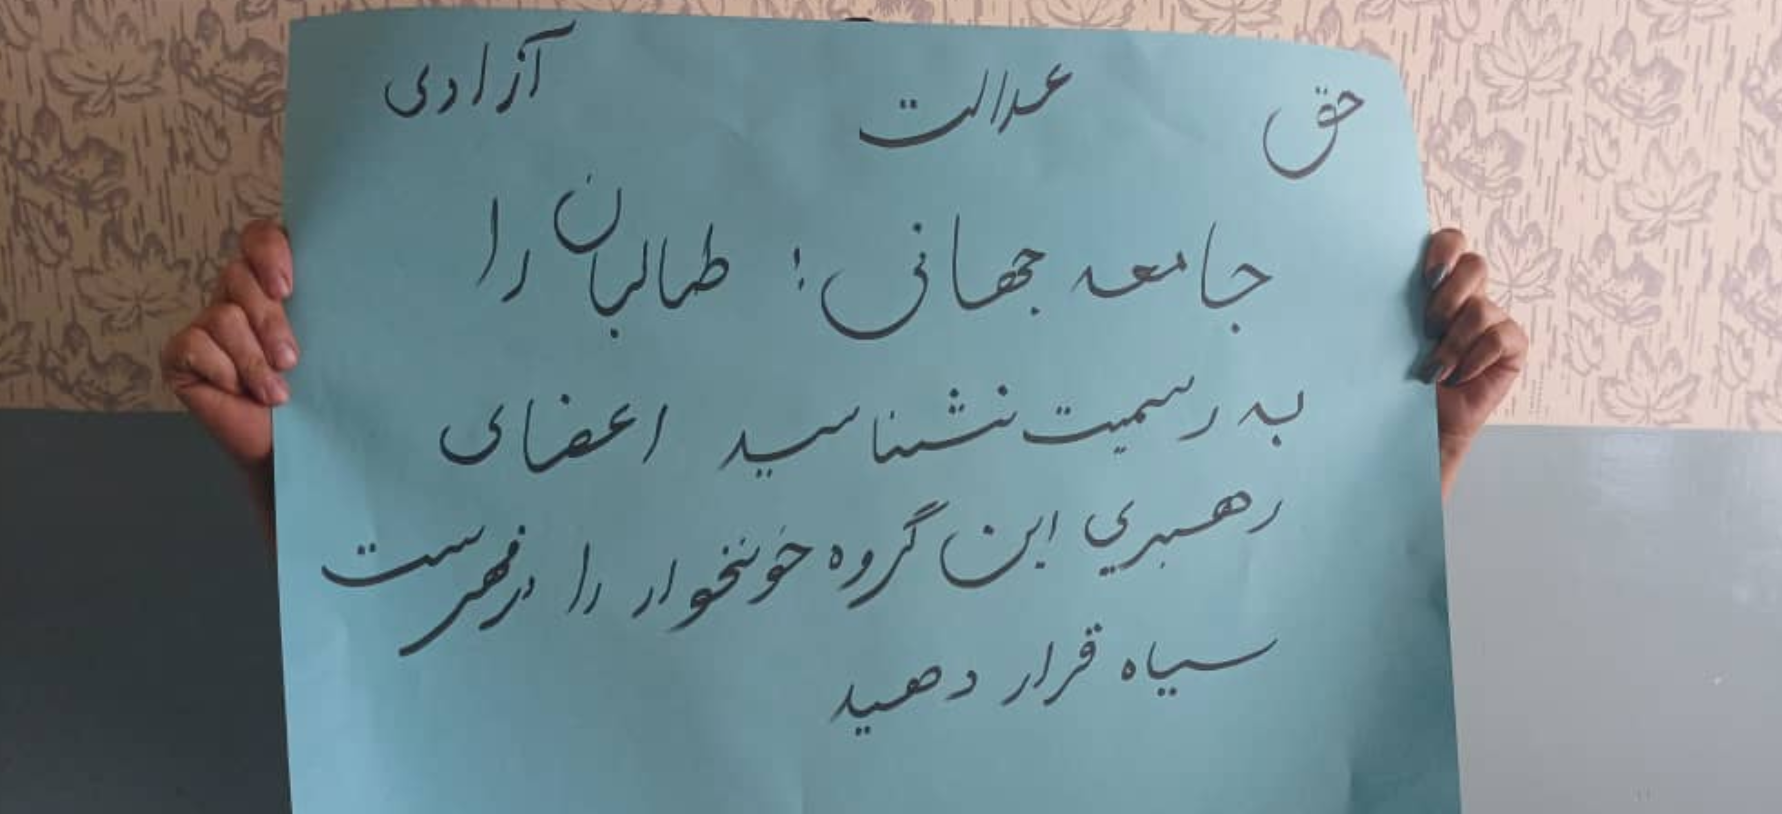 حق عدالت آزادی
جامعه جهانی! طالبان را
به رسمیت نشناسید اعضای
رهبري این گروه خونخوار را در فهرست
سیاه قرار دهید